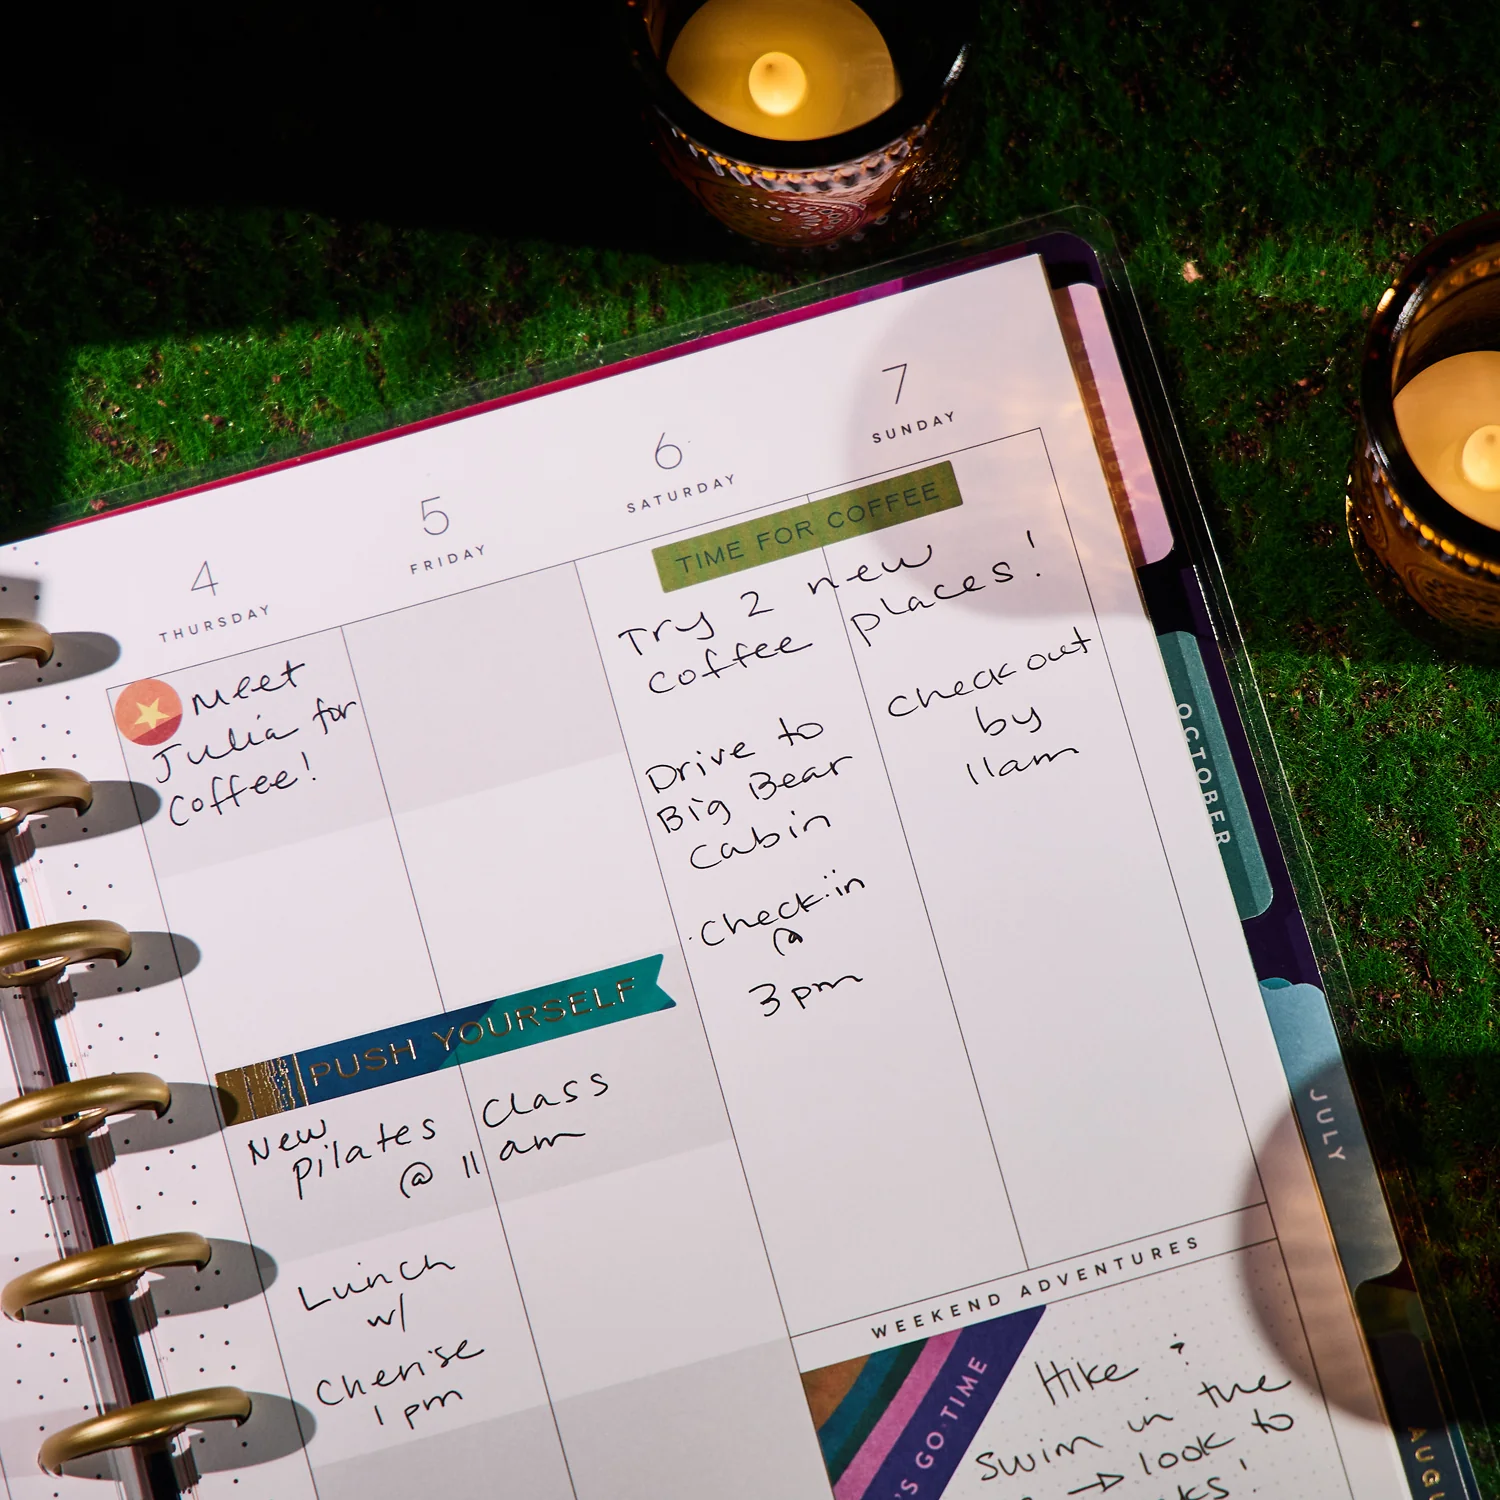 4
THURSDAY
5
FRIDAY
6
SATURDAY
7
SUNDAY
Meet
Julia for
Coffee!
PUSH YOURSELF
New
Pilates Class
@ 11 am
Lunch
w/
Cherise
1 pm
TIME FOR COFFEE
Try 2 new
coffee places!
Drive to
Big Bear
Cabin
Check-in
@
3pm
Check out
by
11am
WEEKEND ADVENTURES
'S GO TIME
Hike &
Swim in the
→ look to
OCTOBER
JULY
AUGU